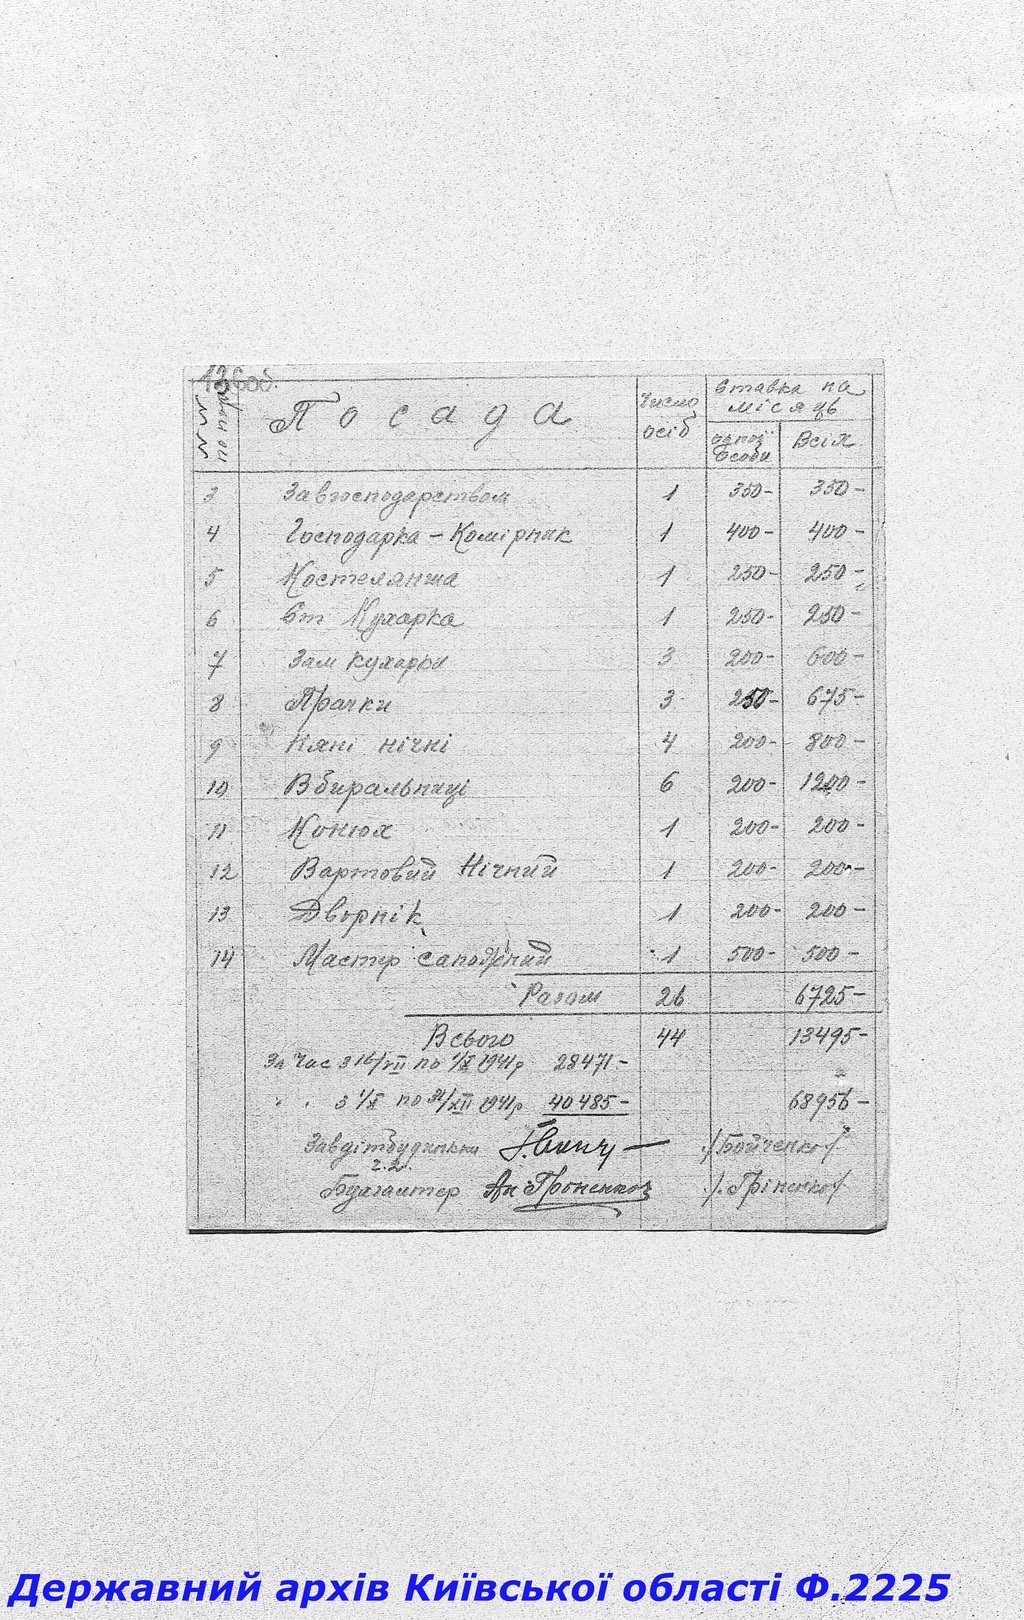 13 об.
№№ по чергі
Посада
Число осіб
Ставка на місяць
одної особи
Всіх
3 Завгосподарством 1 350- 350-
4 Господарка - Комірник 1 400- 400-
5 Костелянша 1 250- 250-
6 Ст Кухарка 1 250- 250-
7 Зам кухарки 3 200- 600-
8 Прачки 3 250- 675-
9 Няні нічні 4 200- 800-
10 Вбиральниці 6 200- 1200-
11 Конюх 1 200- 200-
12 Вартовий Нічний 1 200- 200-
13 Дворнік 1 200- 200-
14 Мастер сапожний 1 500- 500-
Разом 26 6725-
Всього 44 13495-
За час з 16/VII по 1/X 1941р 28471-
" " з 1/X по 31/XII 1941р 40485- 68956-
Завдітбудинком /Бойченко/
Бухгалтер /Гріненко/
Державний архів Київської області Ф.2225